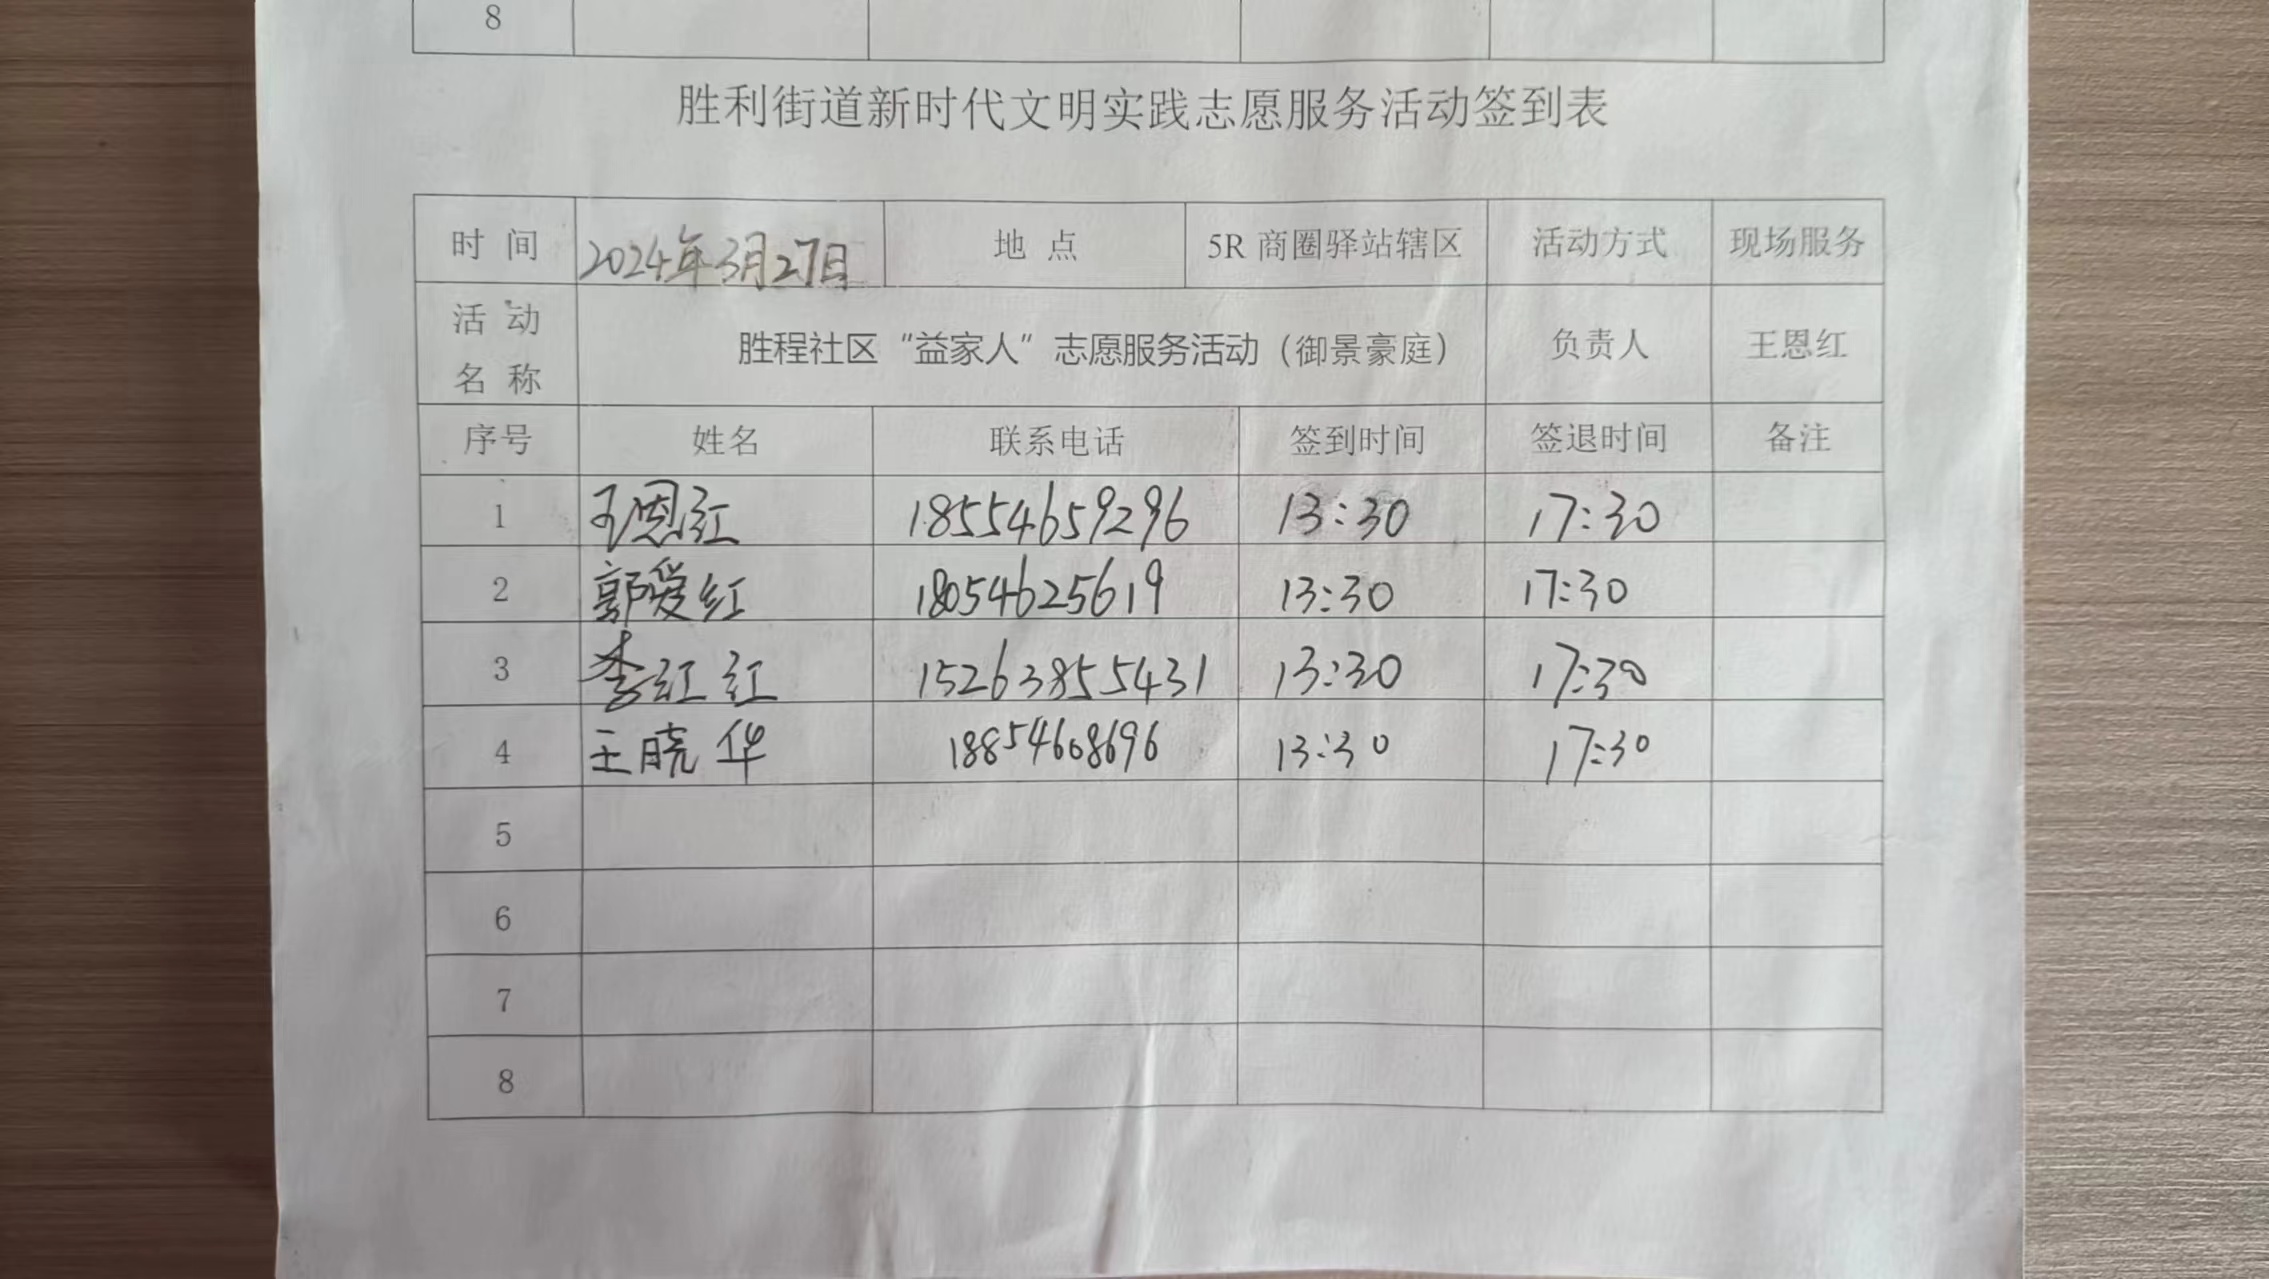 8
胜利街道新时代文明实践志愿服务活动签到表
时 间 2024年3月27日 地 点 5R 商圈驿站辖区 活动方式 现场服务
活 动 名 称 胜程社区“益家人”志愿服务活动（御景豪庭） 负责人 王恩红
序号 姓名 联系电话 签到时间 签退时间 备注
1 王恩红 18554659296 13:30 17:30
2 郭爱红 18054625619 13:30 17:30
3 李红红 15263855431 13:30 17:30
4 王晓华 18854608696 13:30 17:30
5
6
7
8